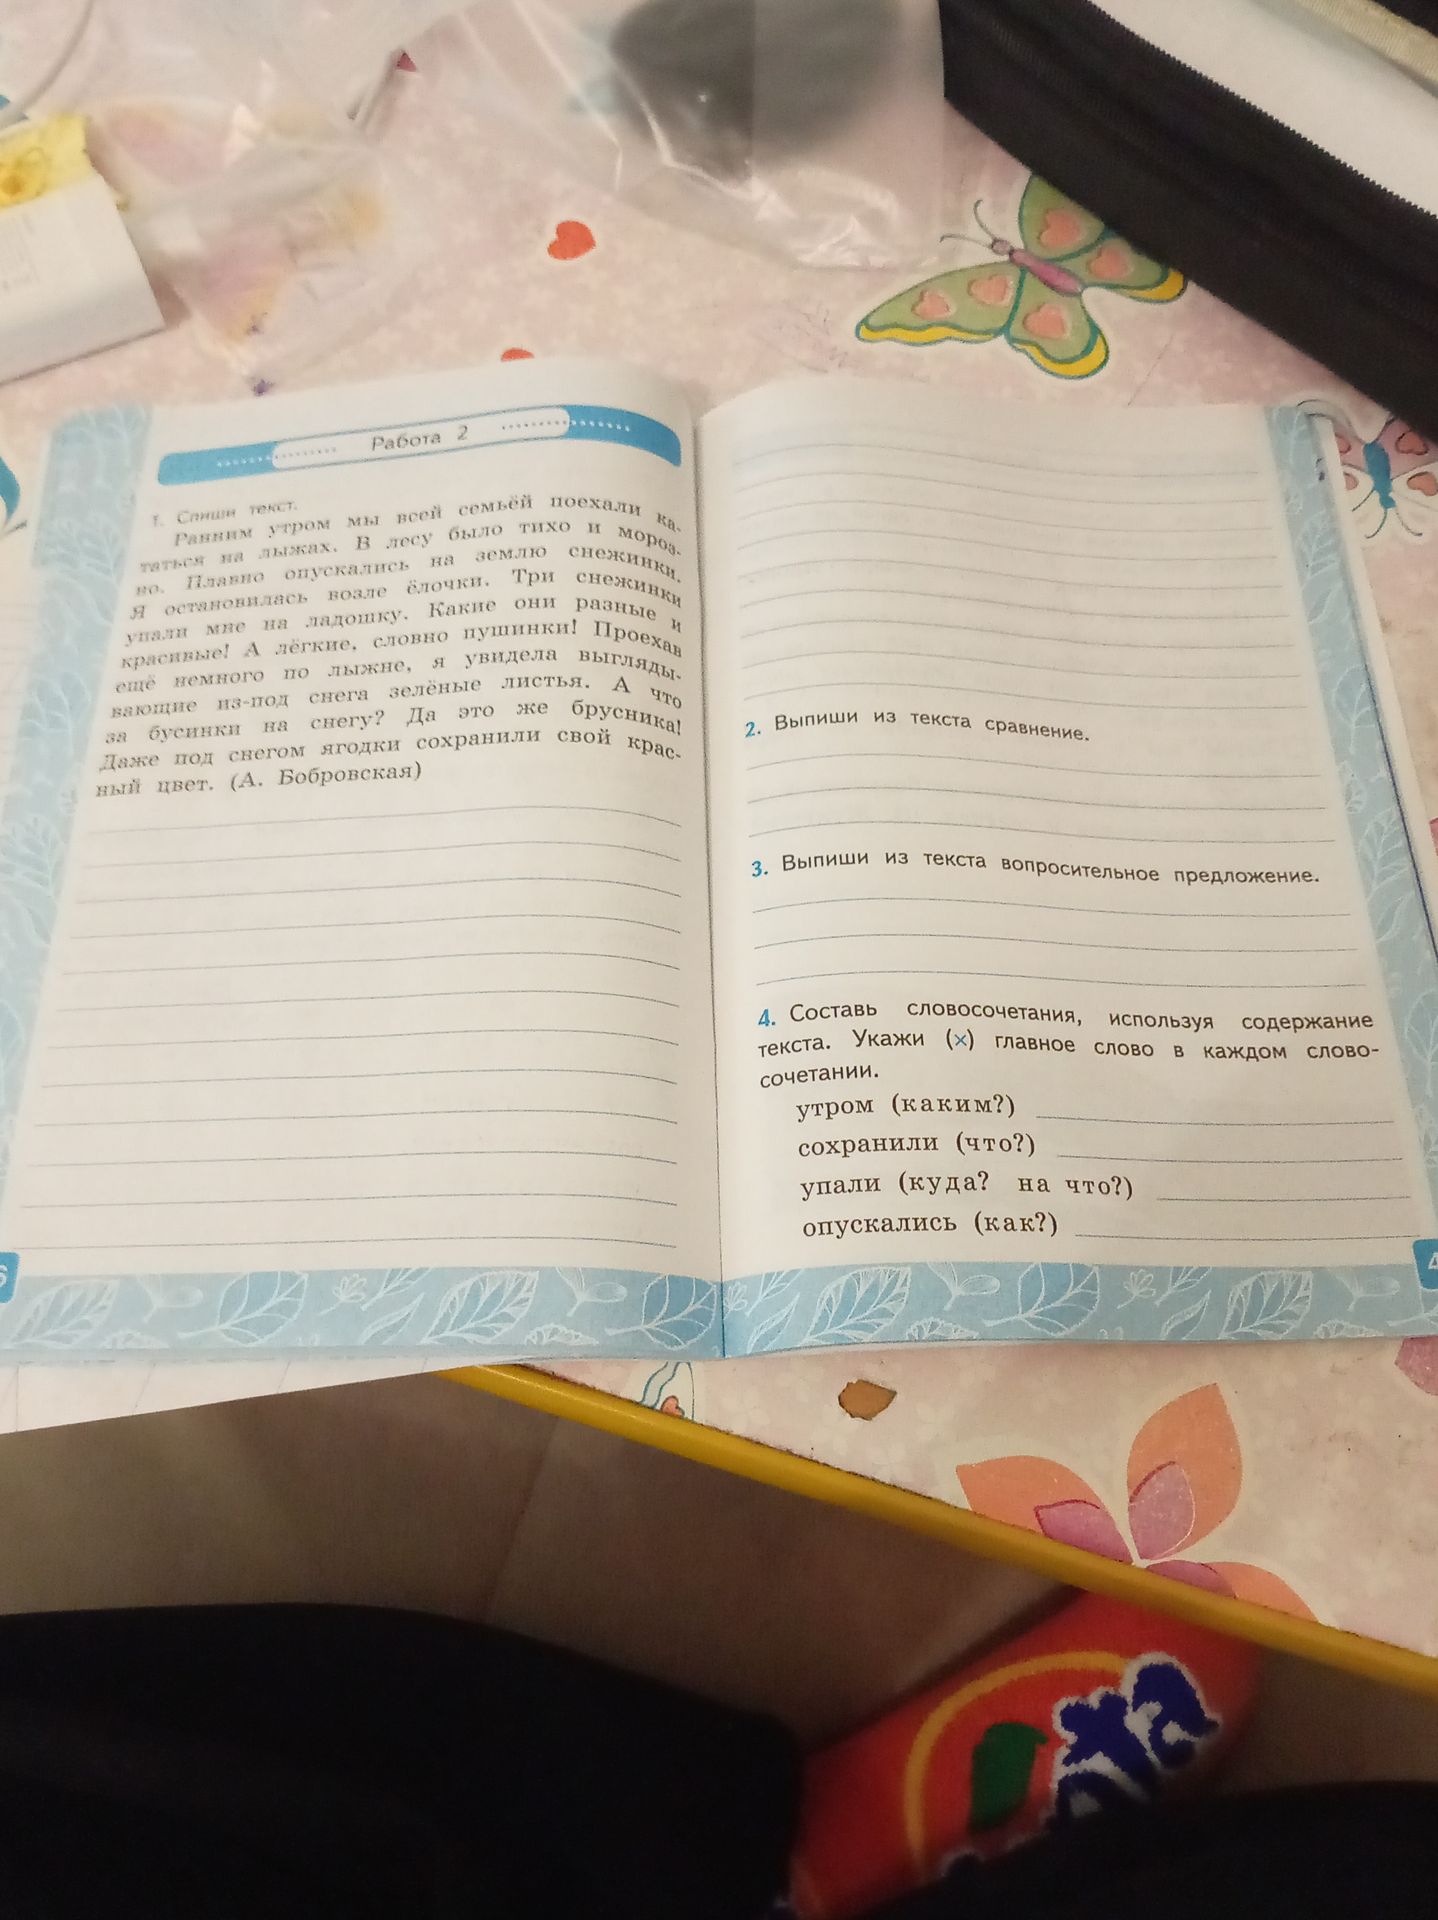 Работа 2
1. Спиши текст.
Ранним утром мы всей семьёй поехали ка-
таться на лыжах. В лесу было тихо и мороз-
но. Плавно опускались на землю снежинки.
Я остановилась возле ёлочки. Три снежинки
упали мне на ладошку. Какие они разные и
красивые! А лёгкие, словно пушинки! Проехав
ещё немного по лыжне, я увидела выгляды-
вающие из-под снега зелёные листья. А что
за бусинки на снегу? Да это же брусника!
Даже под снегом ягодки сохранили свой крас-
ный цвет. (А. Бобровская)
2. Выпиши из текста сравнение.
3. Выпиши из текста вопросительное предложение.
4. Составь словосочетания, используя содержание
текста. Укажи (×) главное слово в каждом слово-
сочетании.
утром (каким?)
сохранили (что?)
упали (куда? на что?)
опускались (как?)